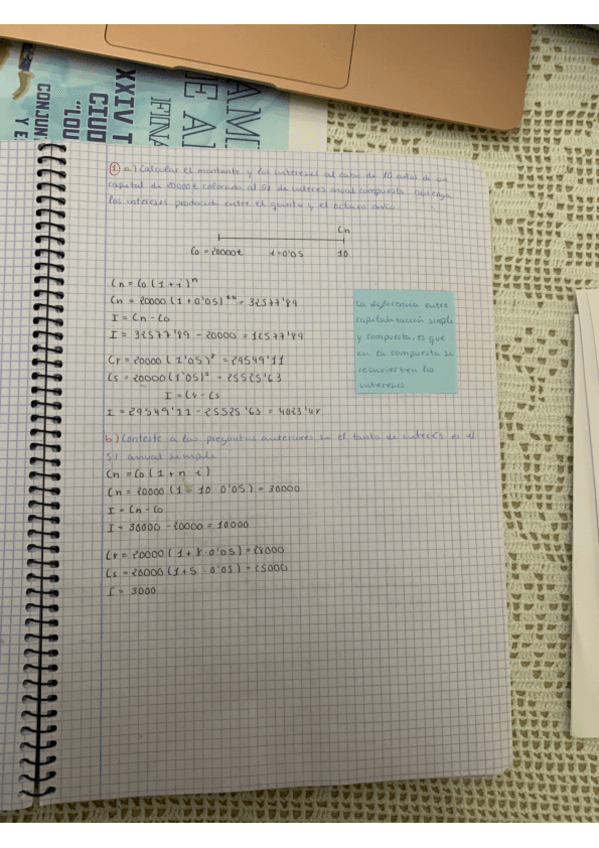 AMI
E AI
FINA
XXIV T
CIUD
"LOU
CONJUN
Y E
① a) Calcular el montante y los intereses al cabo de 10 años de un
capital de 20000€ colocado al 5% de interes anual compuesto.
los intereses producidos entre el quinto y el octavo año.
Cn
C0 = 20000€ i=0'05 10
Cn = C0 (1 + i)ⁿ
Cn = 20000 (1 + 0'05)¹⁰ = 32577'89
I = Cn - C0
I = 32577'89 - 20000 = 12577'89
C8 = 20000 (1'05)⁸ = 29549'11
C5 = 20000 (1'05)⁵ = 25525'63
I = C8 - C5
I = 29549'11 - 25525'63 = 4023'48
La diferencia entre
capitalización simple
y compuesta, es que
en la compuesta se
reinvierten los
intereses
b) Conteste a las preguntas anteriores si el tanto de interés es el
5% anual simple
Cn = C0 (1 + n · i)
Cn = 20000 (1 + 10 · 0'05) = 30000
I = Cn - C0
I = 30000 - 20000 = 10000
C8 = 20000 (1 + 8 · 0'05) = 28000
C5 = 20000 (1 + 5 · 0'05) = 25000
I = 3000